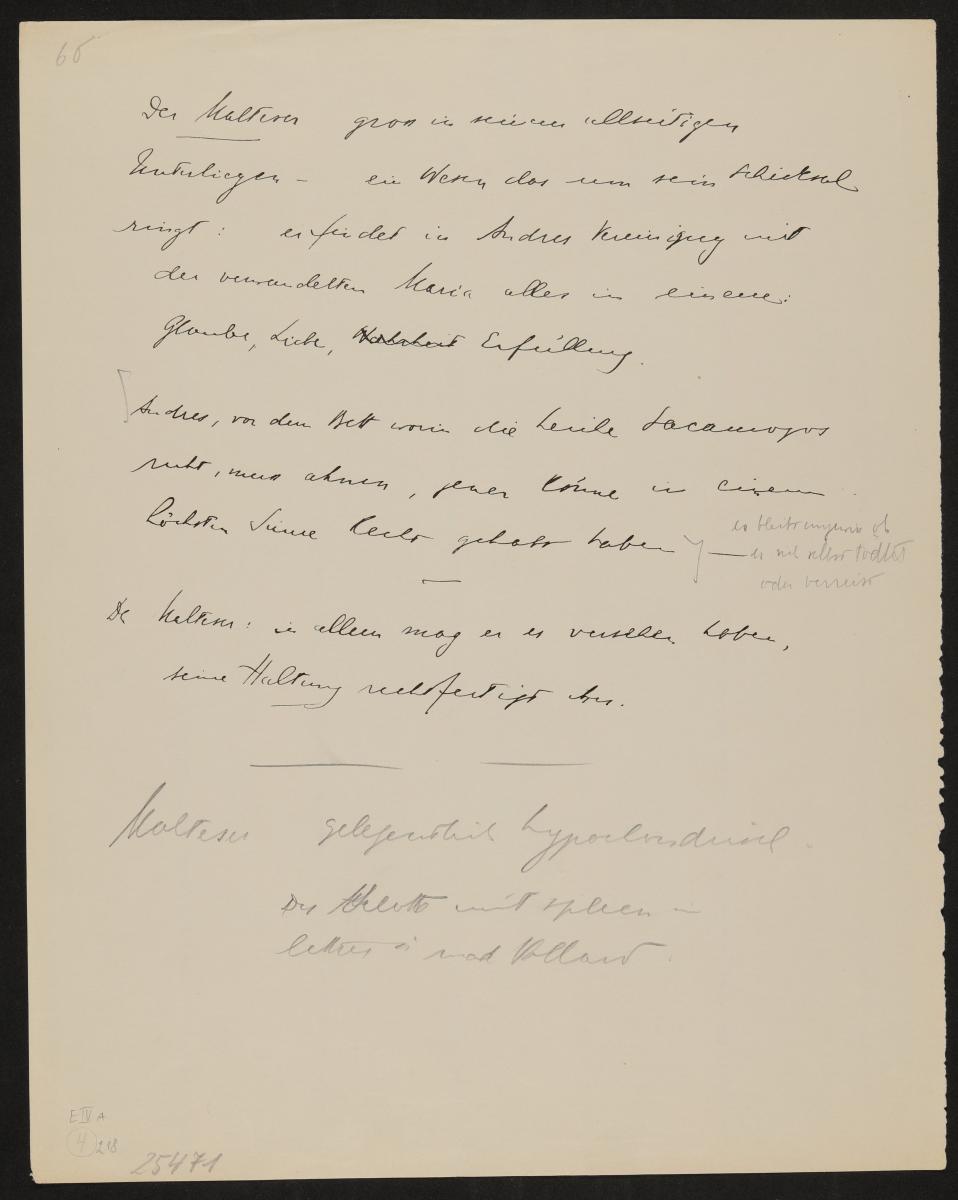 65
Der Malteser gross in seinem allseitigen
Unterliegen – ein Wesen das um sein Schicksal
ringt: er findet in Andres Vereinigung mit
der verwandelten Maria alles in einem:
Glaube, Liebe, Wahrheit Erfüllung.
Andres, vor dem Bett worin die Leiche Sacramozos
ruht, muss ahnen, jener könne in einem
höchsten Sinne Recht gehabt haben
es bleibt ungewiss ob
er sich selbst tödtet
oder verreist
Der Malteser: in allem mag er es versehen haben,
seine Haltung rechtfertigt ihn.
Malteser gelegentlich hypochondrisch.
Der Schotte mit spleen in
lettres à mad Volland.
E IV A
4 218
25471